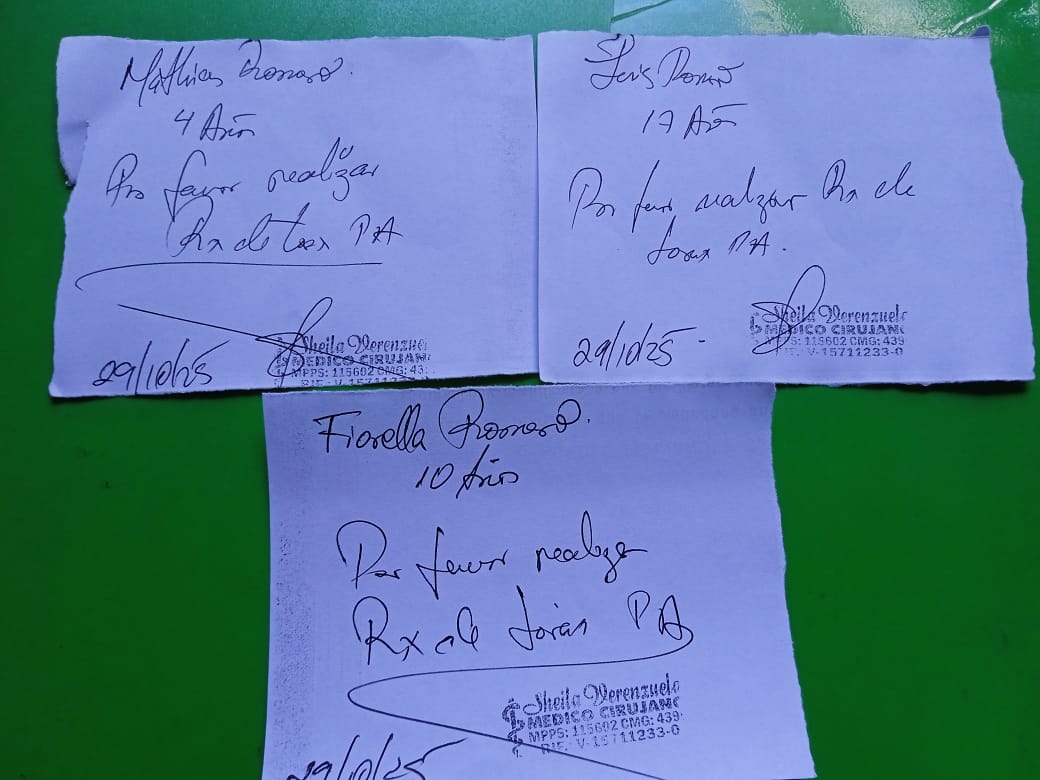 Mathias Romero.
4 Años
Por favor realizar
Rx de torax PA
29/10/25
Sheila Verenzuel
MEDICO CIRUJAN
MPPS: 115602 CMG: 43
RIF.: V-15711233-0
Luis Romero
17 Años
Por favor realizar Rx de
torax PA.
29/10/25
Sheila Verenzuel
MEDICO CIRUJAN
MPPS: 115602 CMG: 439
RIF.: V-15711233-0
Fiorella Romero.
10 Años
Por favor realizar
Rx de torax PA
Sheila Verenzuel
MEDICO CIRUJANO
MPPS: 115602 CMG: 439
RIF.: V-15711233-0
29/10/25